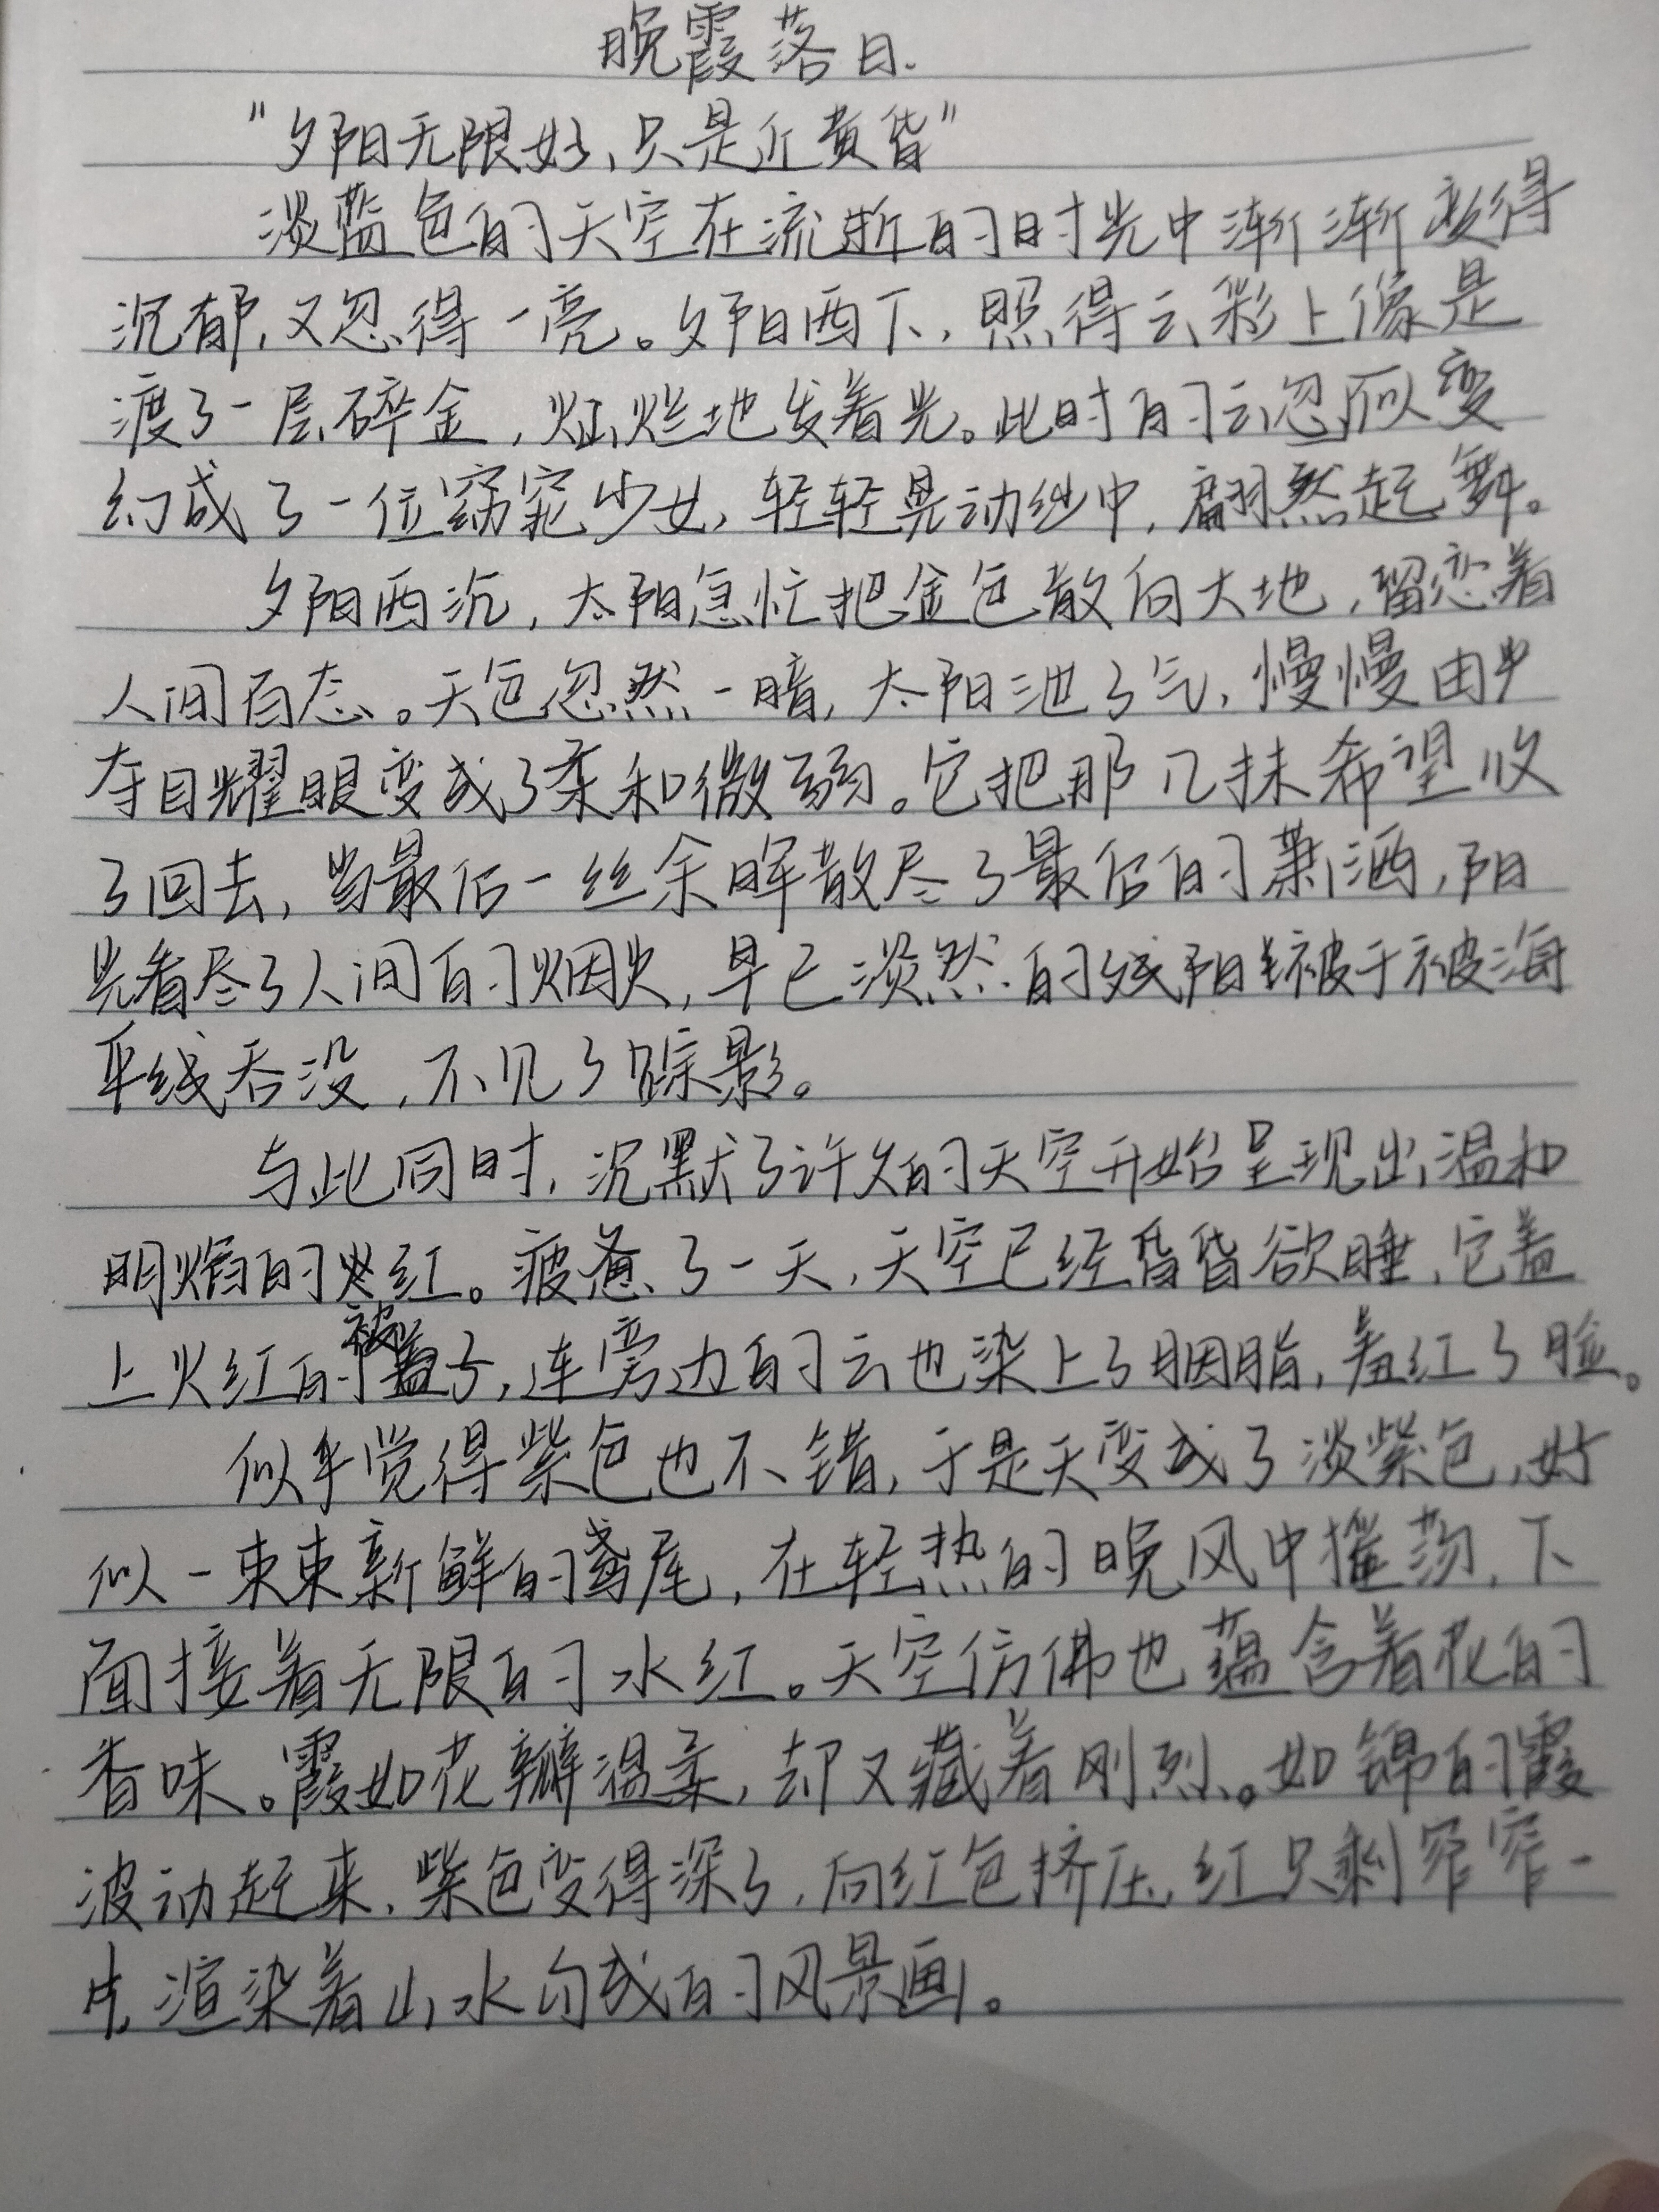 晚霞落日.
"夕阳无限好、只是近黄昏"
淡蓝色的天空在流逝的时光中渐渐变得
沉郁,又忽得一亮。夕阳西下,照得云彩上像是
渡了一层碎金,灿烂地发着光。此时的云忽似变
幻成了一位窈窕少女,轻轻晃动纱巾,翩然起舞。
夕阳西沉,太阳急忙把金色散向大地,留恋着
人间百态。天色忽然一暗,太阳泄了气,慢慢由
夺目耀眼变成了柔和微弱。它把那几抹希望收
了回去,当最后一丝余晖散尽了最后的萧洒,阳
光看尽了人间的烟火,早已淡然的残阳终于被海
平线吞没,不见了踪影。
与此同时,沉默了许久的天空开始呈现出温和
明焰的火红。疲惫了一天,天空已经昏昏欲睡,它盖
上火红的被子,连旁边的云也染上了胭脂,羞红了脸。
似乎觉得紫色也不错,于是天变成了淡紫色,好
似一束束新鲜的鸢尾,在轻热的晚风中摇荡,下
面接着无限的水红。天空仿佛也蕴含着花的
香味。霞如花瓣温柔,却又藏着刚烈。如锦的霞
波动起来,紫色变得深了,向红色挤压,红只剩窄窄一
片,渲染着山水勾成的风景画。